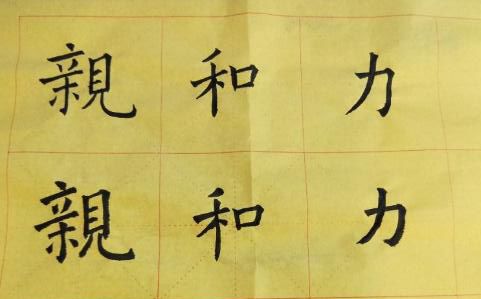 親和力
親和力